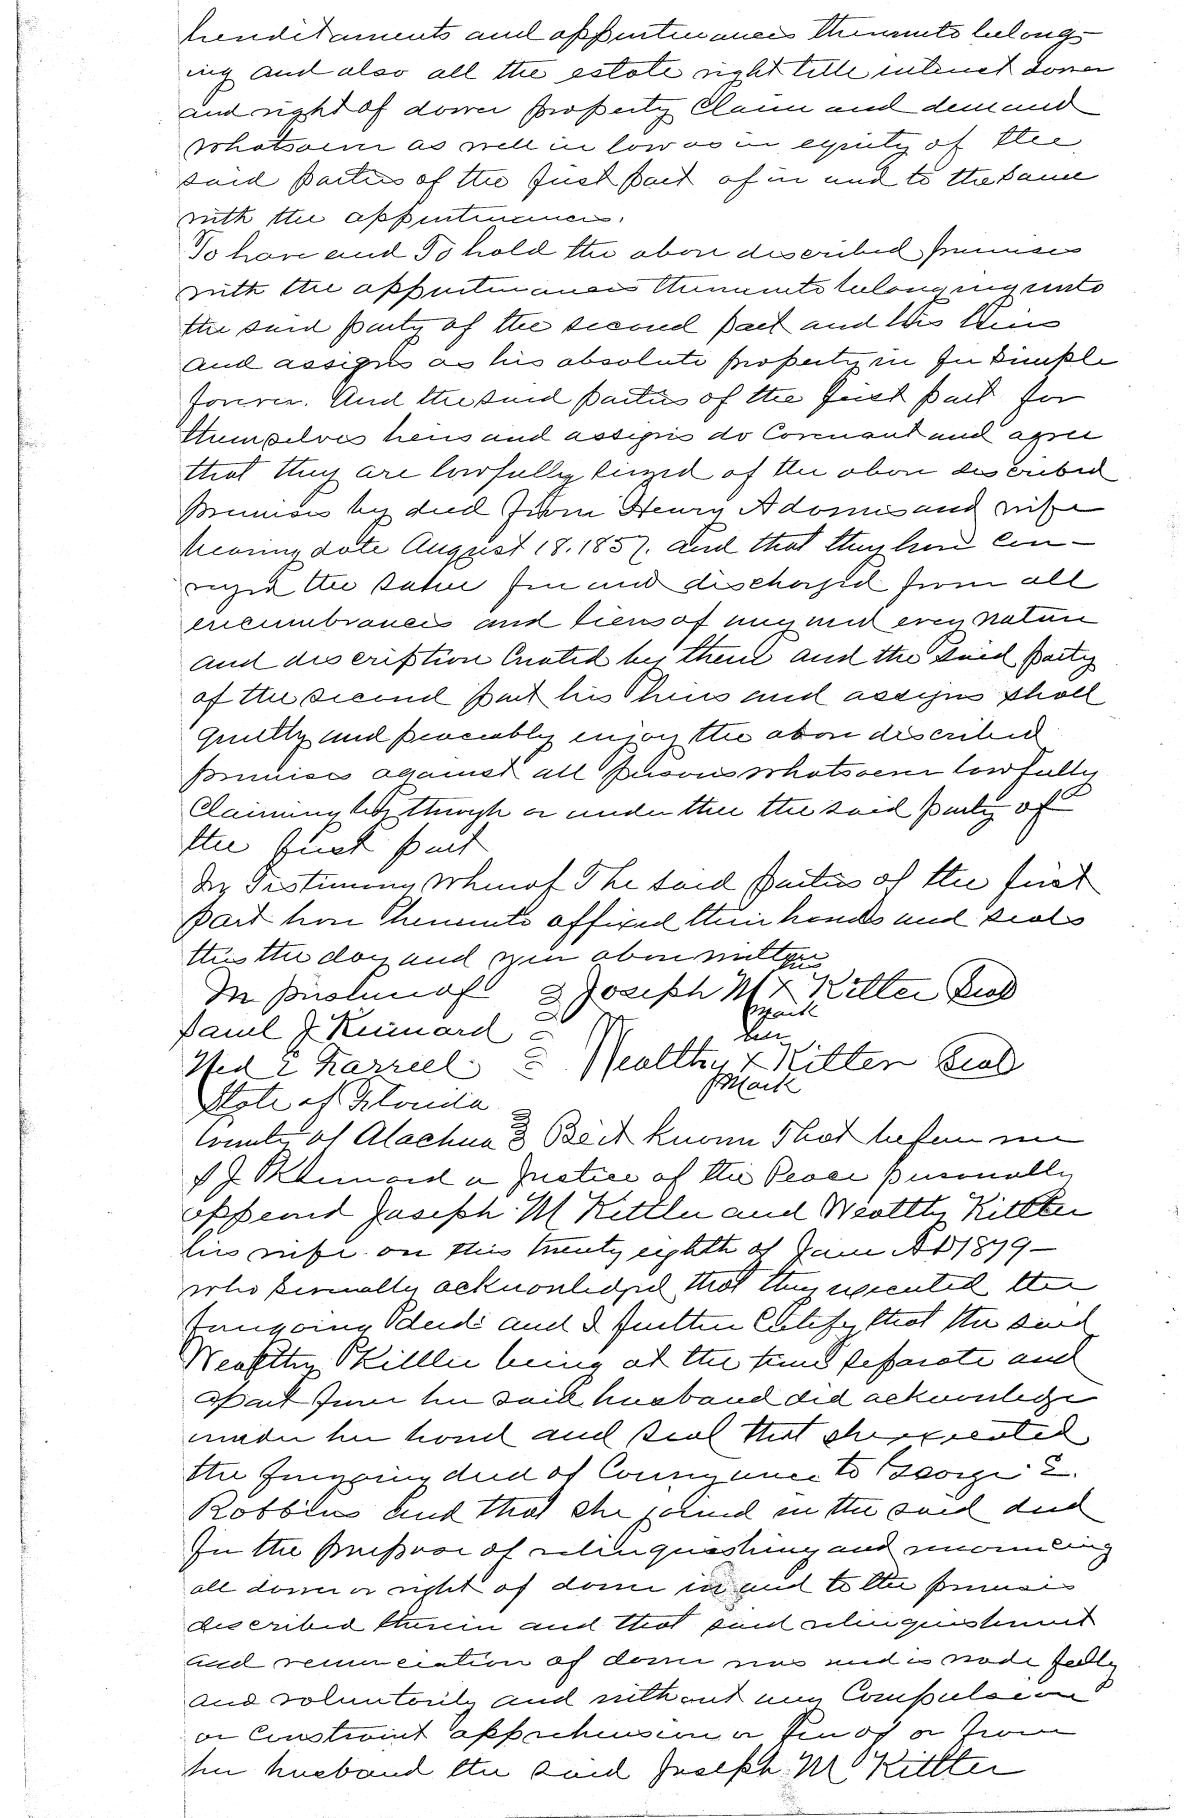 hereditaments and appurtenances thereunto belong-
ing and also all the estate right title interest dower
and right of dower property Claim and demand
whatsoever as well in law as in equity of the
said parties of the first part of in and to the same
with the appurtenances.
To have and To hold the above described premises
with the appurtenances thereunto belonging unto
the said party of the second part and his heirs
and assigns as his absolute property in fee simple
forever. And the said parties of the first part for
themselves heirs and assigns do Covenant and agree
that they are lawfully siezed of the above described
premises by deed from Henry Adams and wife
bearing date August 18. 1857. and that they have con-
veyed the same free and discharged from all
encumbrances and liens of any and every nature
and description Created by them and the said party
of the second part his heirs and assigns shall
quietly and peaceably enjoy the above described
premises against all persons whatsoever lawfully
Claiming by through or under thee the said party of
the first part
In Testimony Whereof The said parties of the first
part have hereunto affixed their hands and seals
this the day and year above written
his
In presence of Joseph M x Kitter Seal
mark
Saml J Kennard
her
Ned E Farrell Wealthy x Kitter Seal
Mark
State of Florida
County of Alachua Be it known That before me
S J Kennard a Justice of the Peace personally
appeard Joseph M Kittler and Wealthy Kittler
his wife on this twenty eighth of June AD 1879-
who severally acknowledged that they executed the
foregoing deed and I further Certify that the said
Wealthy Kittler being at the time separate and
apart from her said husband did acknowledge
under her hand and seal that she executed
the foregoing deed of Conveyance to George E.
Robbins and that she joined in the said deed
for the purpose of relinquishing and renouncing
all dower or right of dower in and to the premises
described therein and that said relinquishment
and renunciation of dower was and is made freely
and voluntarily and without any Compulsion
or Constraint apprehension or fear of or from
her husband the said Joseph M Kittler